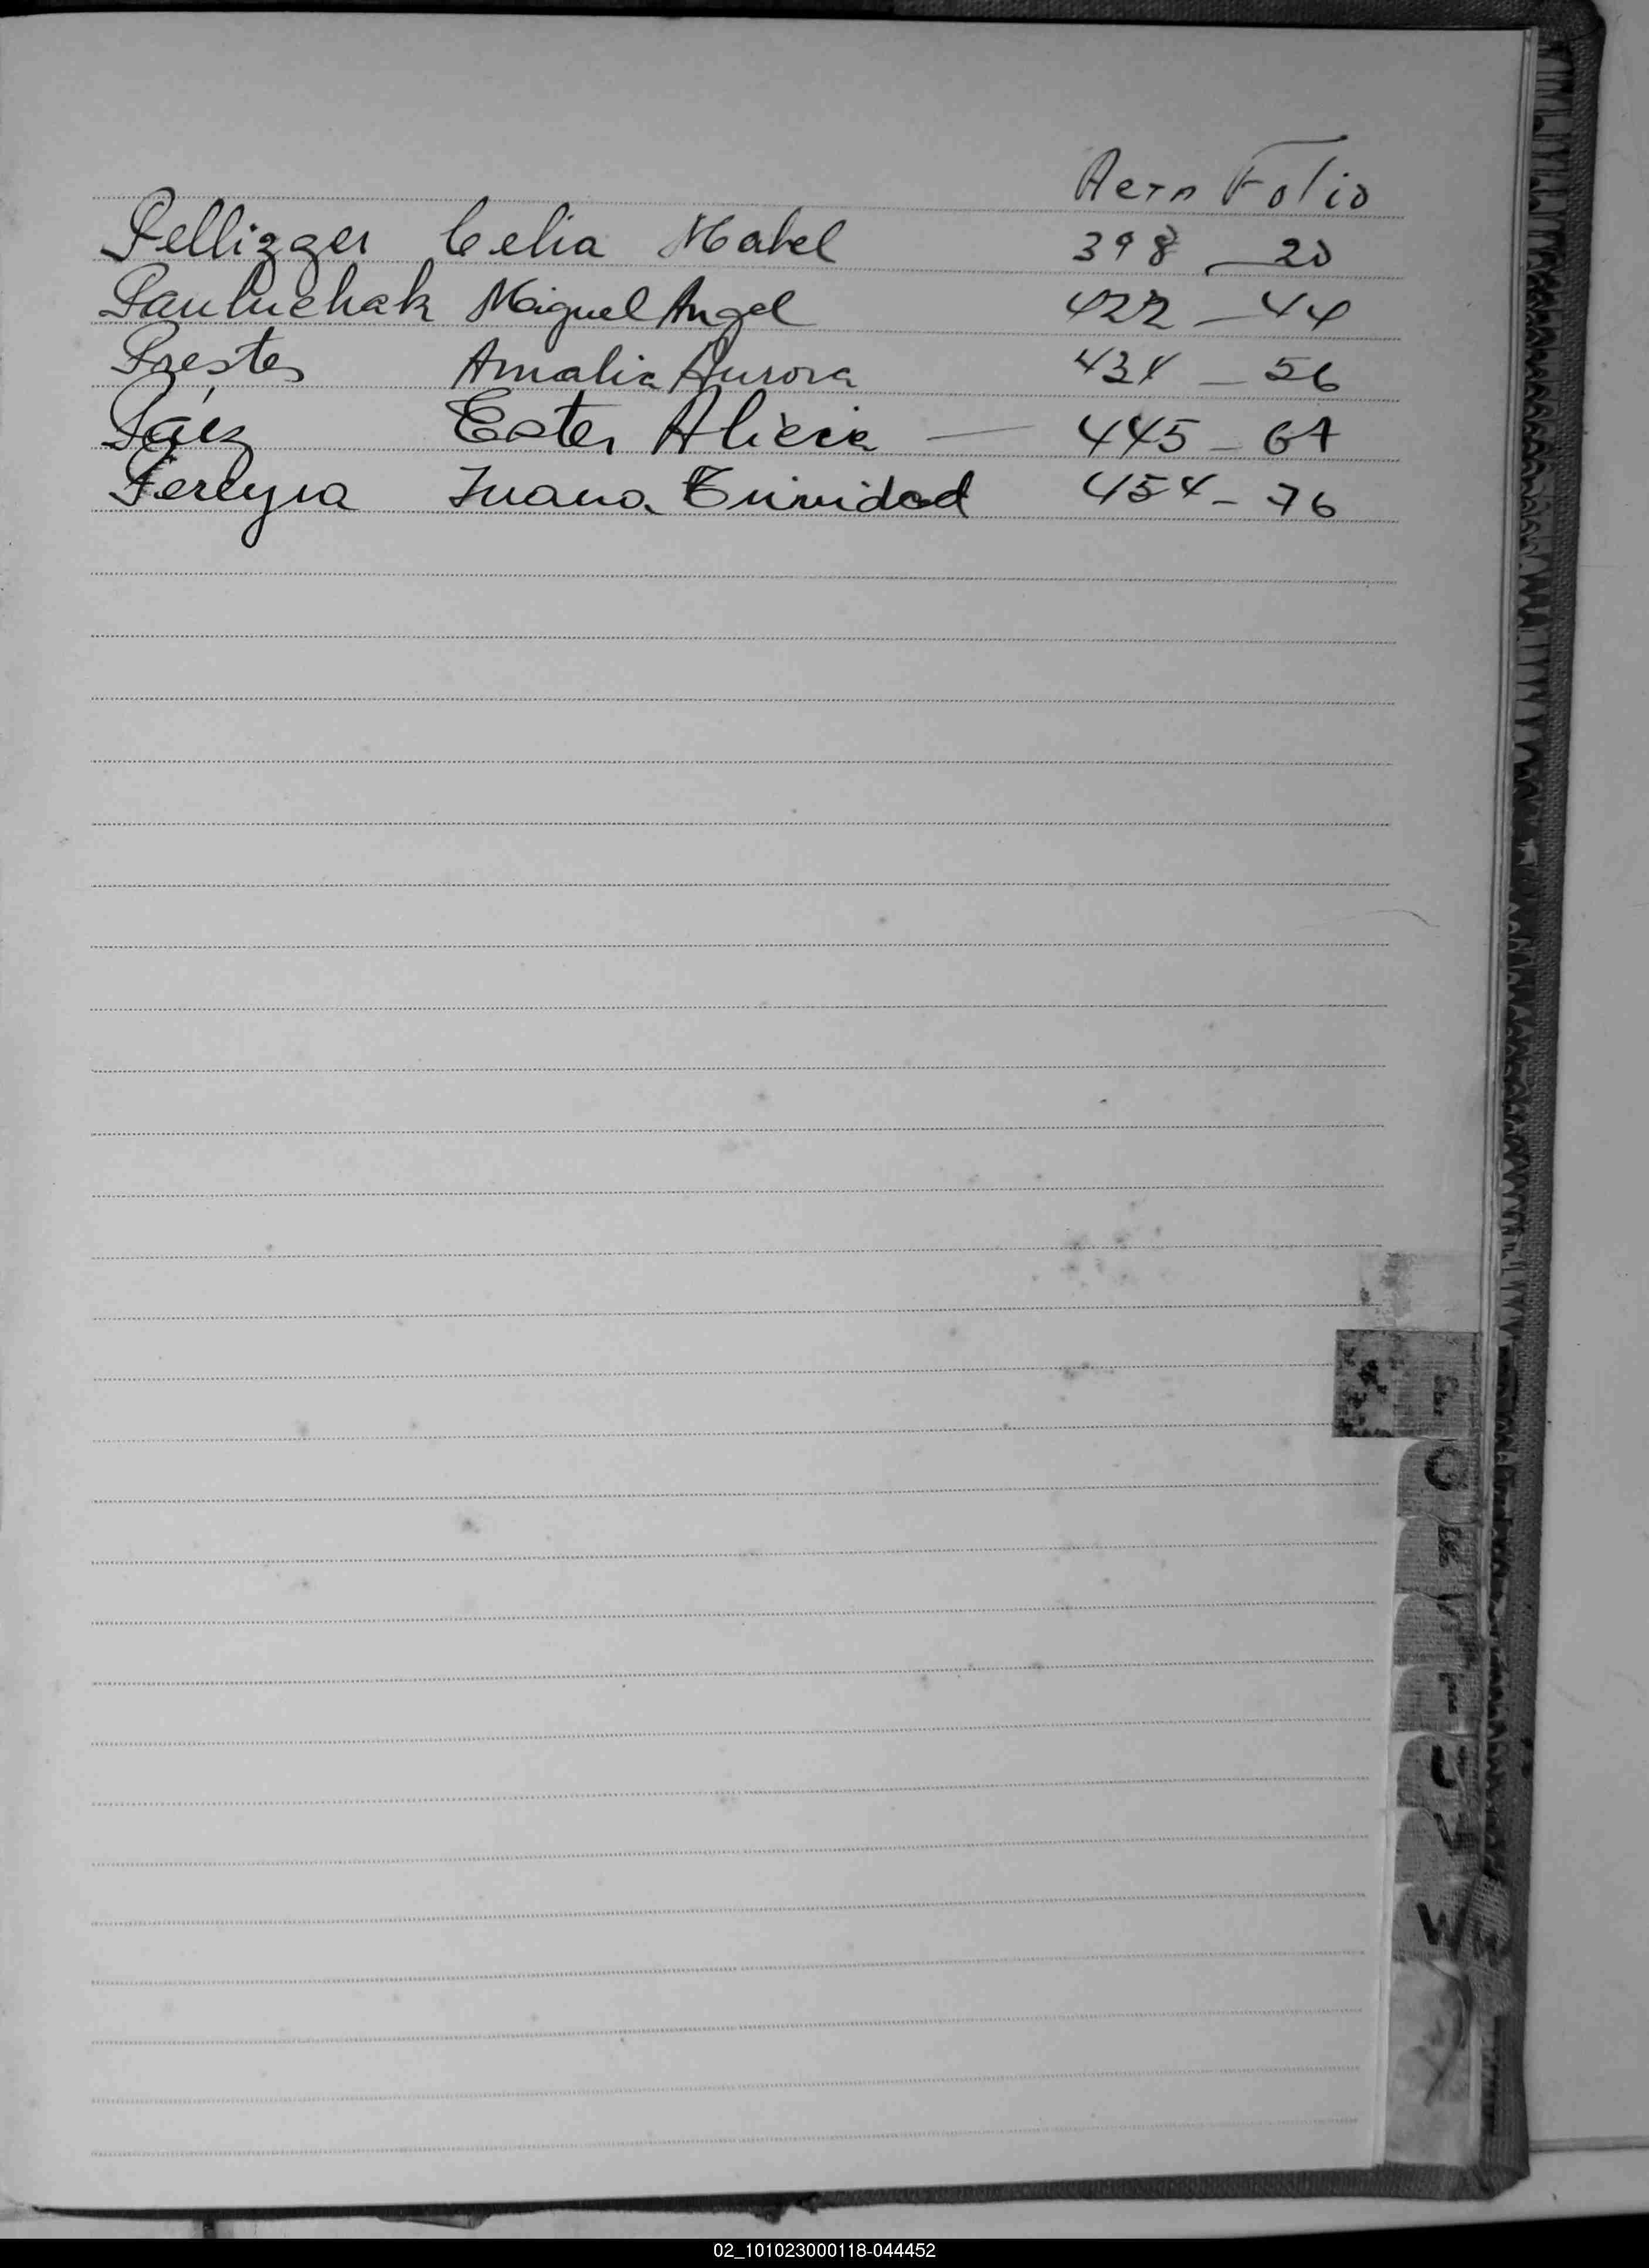 Acta Folio
Pellizzer Celia Mabel 398 _ 20
Pauluchak Miguel Angel 422 - 44
Prestes Amalia Aurora 434 - 56
Páez Ester Alicia — 445 - 67
Pereyra Juana Trinidad 454 - 76
U
V
W
02_101023000118-044452